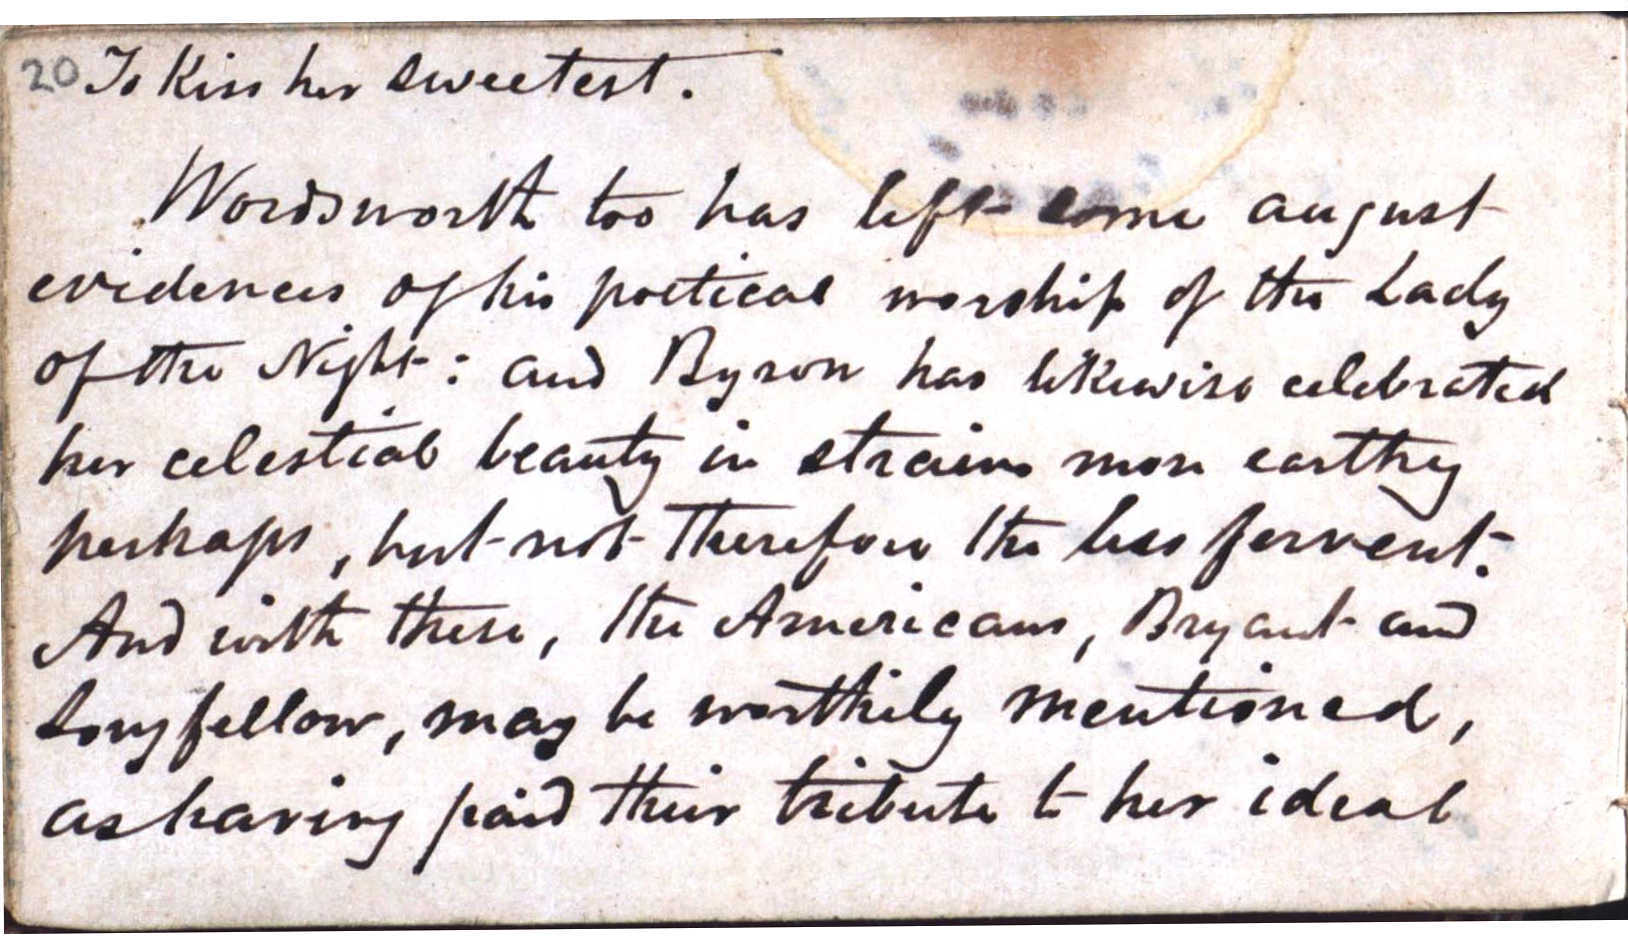 20 To Kiss her sweetest.
Wordsworth too has left some august
evidences of his poetical worship of the Lady
of the Night: and Byron has likewise celebrated
her celestial beauty in strains more earthy
perhaps, but not therefore the less fervent.
And with these, the Americans, Bryant and
Longfellow, may be worthily mentioned,
as having paid their tribute to her ideal